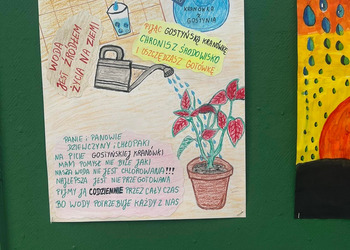 KRANÓWKA
Z
GOSTYNIA
WODA
JEST ŹRÓDŁEM
ŻYCIA NA ZIEMI
PIJĄC GOSTYŃSKĄ KRANÓWKĘ
CHRONISZ ŚRODOWISKO
I OSZCZĘDZASZ GOTÓWKĘ
PANIE I PANOWIE
DZIEWCZYNY I CHŁOPAKI
NA PICIE GOSTYŃSKIEJ KRANÓWKI
MAM POMYSŁ NIE BYLE JAKI
NASZA WODA NIE JEST CHLOROWANA!!!
NAJLEPSZA JEST NIE PRZEGOTOWANA
PIJMY JĄ CODZIENNIE PRZEZ CAŁY CZAS
BO WODY POTRZEBUJE KAŻDY Z NAS